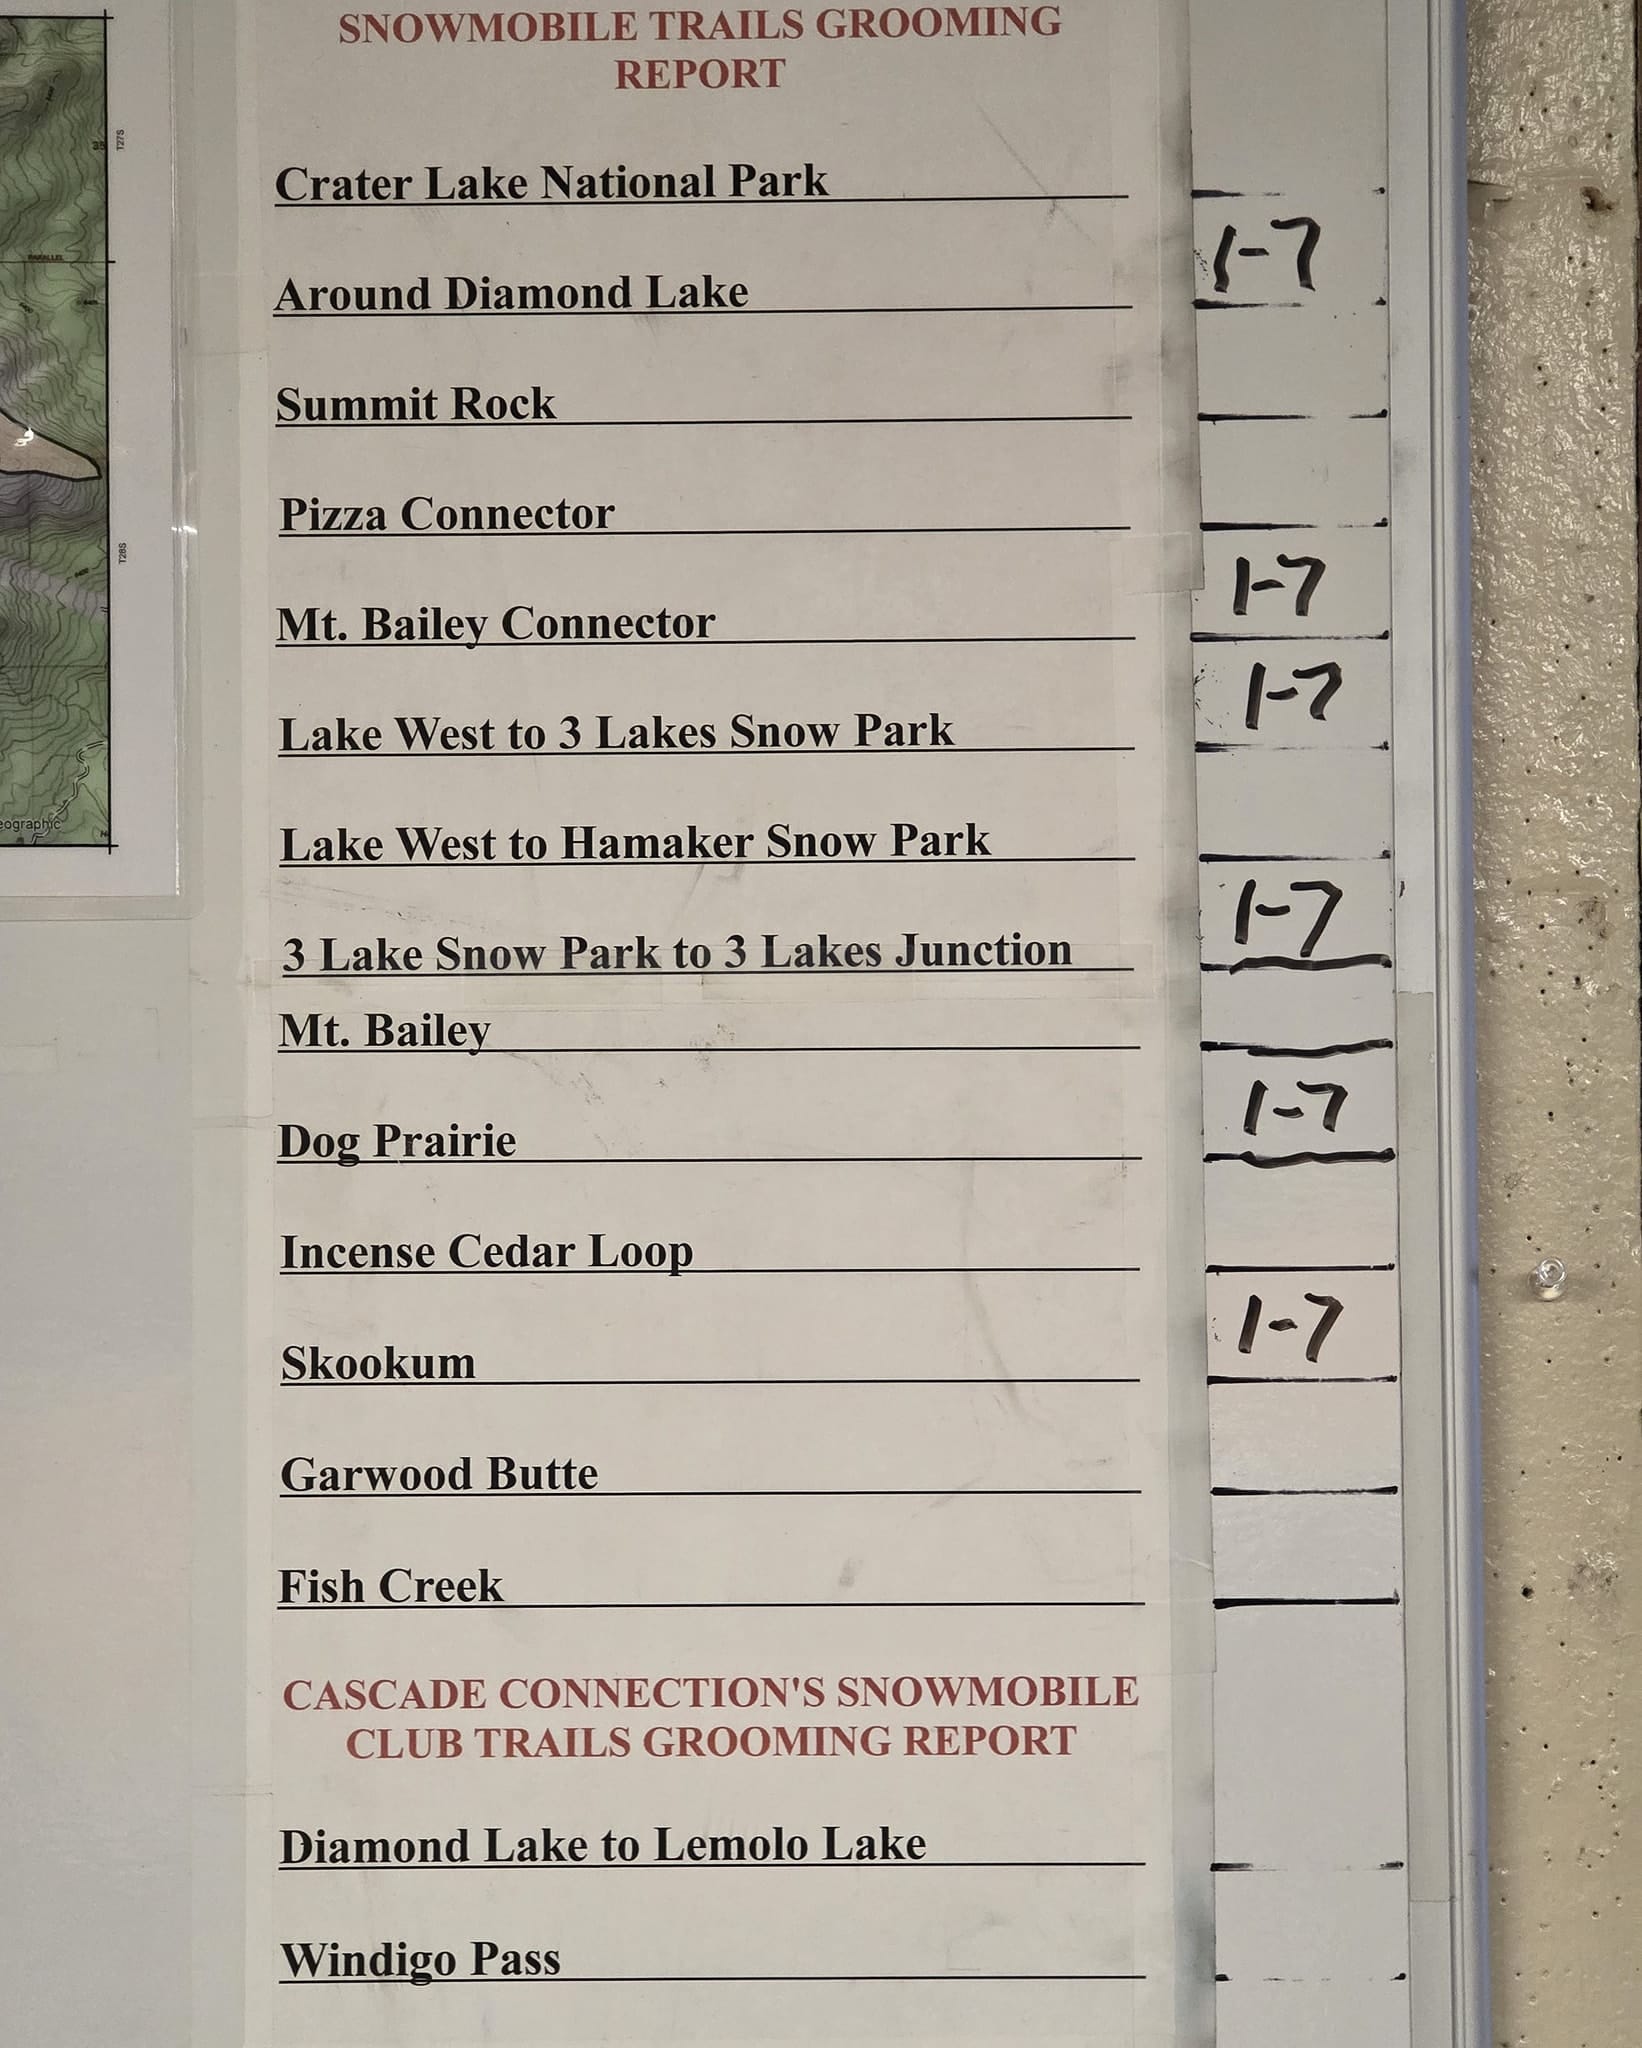 SNOWMOBILE TRAILS GROOMING
REPORT
Crater Lake National Park
Around Diamond Lake 1-7
Summit Rock
Pizza Connector
Mt. Bailey Connector 1-7
Lake West to 3 Lakes Snow Park 1-7
Lake West to Hamaker Snow Park
3 Lake Snow Park to 3 Lakes Junction 1-7
Mt. Bailey
Dog Prairie 1-7
Incense Cedar Loop
Skookum 1-7
Garwood Butte
Fish Creek
CASCADE CONNECTION'S SNOWMOBILE
CLUB TRAILS GROOMING REPORT
Diamond Lake to Lemolo Lake
Windigo Pass
35
T27S
PARALLEL
T28S
eographic